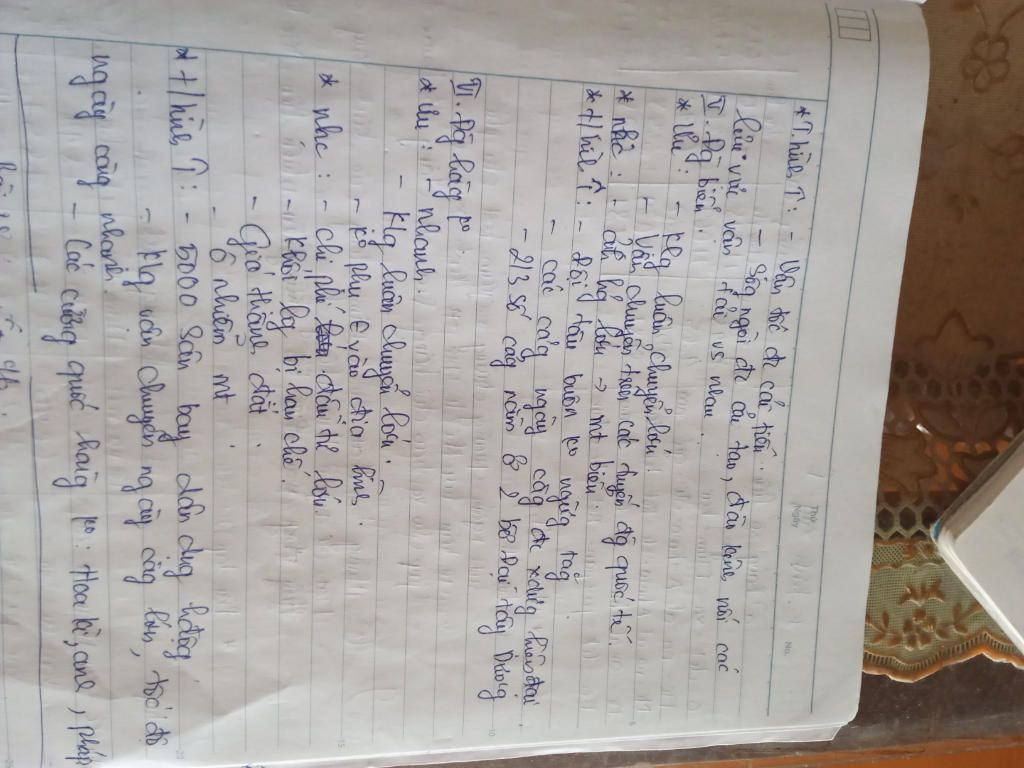 Thứ
Ngày
No.
* T.hình PT: - Vận tốc đc cải tiến.
- Sông ngòi đc cải tạo, đào kênh nối các
lưu vực vận tải vs nhau.
V. Đg biển.
* Ưu: - Klg luân chuyển lớn.
- Vận chuyển trên các tuyến đg quốc tế.
* nhc: - ảh hg lớn → mt biển.
* t/hình PT: - đội tàu buôn ko ngừng tăg
- các cảg ngày càg đc xdựg hiện đại.
- 2/3 số cảg nằm ở 2 bờ Đại Tây Dương
VI. Đg hàng ko.
* Ưu: - nhanh.
- Klg luân chuyển lớn.
- ko phụ t vào địa hình.
* nhc: - chi phí đầu tư lớn
- Khối lg bị hạn chế.
- Giá thành đắt.
- Ô nhiễm mt
* t/hình PT: - 5000 sân bay dân dụng hđộng
- Klg vận chuyển ngày càng lớn, tốc độ
ngày càng nhanh.
- Các cường quốc hàng ko: Hoa kì, anh, pháp